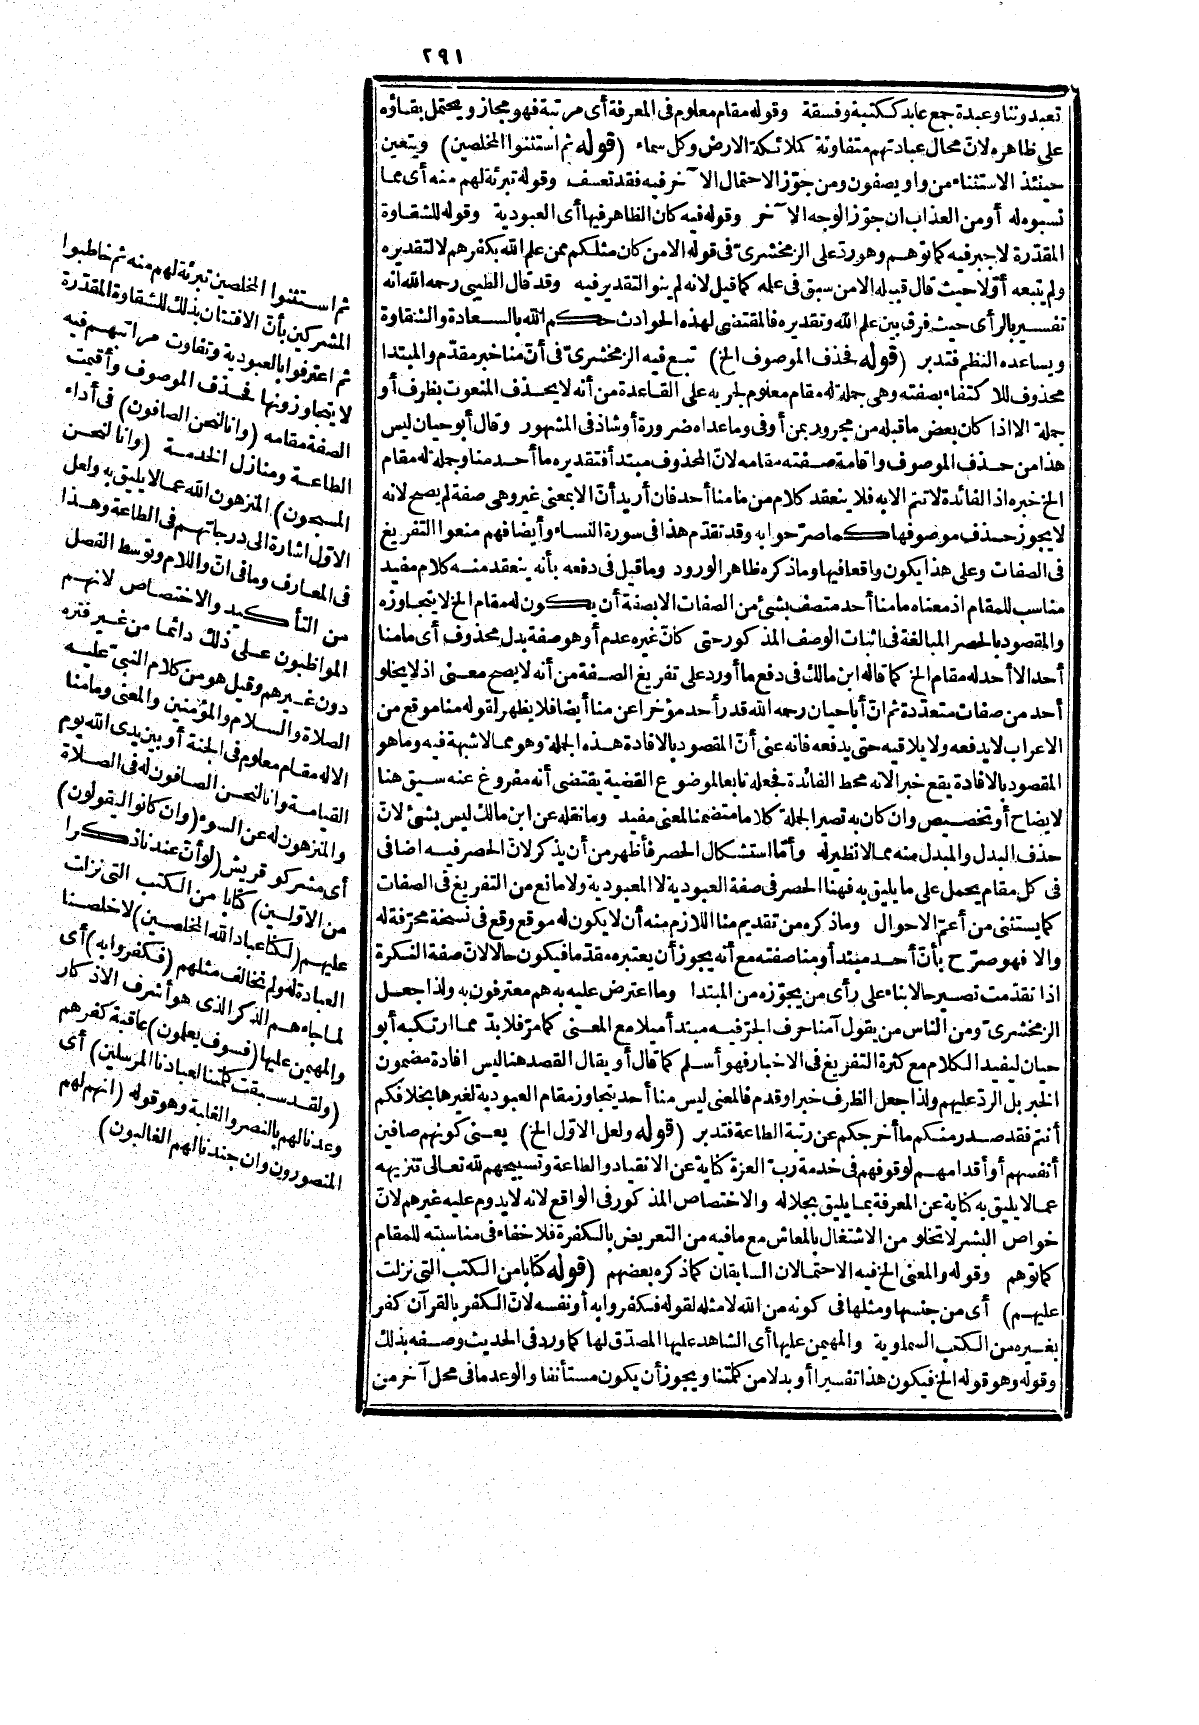 ٢٩١
تعبدوننا وعبدة جمع عابد ككتبة وفسقة وقوله مقام معلوم فى المعرفة أى مرتبة فهو مجاز ويحتمل بقاؤه
على ظاهره لانّ محال عبادتهم متفاوتة كملائكة الارض وكل سماء (قوله ثم استثنوا المخلصين) ويتعين
حينئذ الاستثناء من واو يصفون ومن جوّز الاحتمال الآخر فيه فقد تعسف وقوله تبرئة لهم منه أى مما
نسبوه له أو من العذاب ان جوّز الوجه الآخر وقوله فيه كان الظاهر فيها أى العبودية وقوله للشقاوة
المقدّرة لا جبر فيه كما توهم وهو ردّ على الزمخشرىّ فى قوله الا من كان مثلكم ممن علم الله بكفرهم لا لتقديره
ولم يتبعه أوّلا حيث قال قبيله الا من سبق فى علمه كما قيل لانه لم ينو التقدير فيه وقد قال الطيبى رحمه الله انه
تفسير بالرأى حيث فرق بين علم الله وتقديره فالمقتضى لهذه الحوادث حكم الله بالسعادة والشقاوة
ويساعده النظم فتدبر (قوله فحذف الموصوف الخ) تبع فيه الزمخشرىّ فى أنّ منا خبر مقدّم والمبتدا
محذوف للاكتفاء بصفته وهى جملة له مقام معلوم لجريه على القاعدة من أنه لا يحذف المنعوت بظرف أو
جملة الا اذا كان بعض ما قبله من مجرور بمن أو فى وما عداه ضرورة أو شاذ فى المشهور وقال أبو حيان ليس
هذا من حذف الموصوف واقامة صفته مقامه لانّ المحذوف مبتدأ وتقديره ما أحد منا وجملة له مقام
الخ خبره اذ الفائدة لا تتم الا به فلا ينعقد كلام من ما منا أحد فان أريد أنّ الا بمعنى غير وهى صفة لم يصح لانه
لا يجوز حذف موصوفها كما صرّحوا به وقد تقدّم هذا فى سورة النساء وأيضا فهم منعوا التفريغ
فى الصفات وعلى هذا يكون واقعا فيها وما ذكره ظاهر الورود وما قيل فى دفعه بأنه ينعقد منه كلام مفيد
مناسب للمقام اذ معناه ما منا أحد متصف بشئ من الصفات الا بصفة أن يكون له مقام الخ لا يتجاوزه
والمقصود بالحصر المبالغة فى اثبات الوصف المذكور حتى كانّ غيره عدم أو هو صفة بدل محذوف أى ما منا
أحد الا أحد له مقام الخ كما قاله ابن مالك فى دفع ما أورد على تفريغ الصفة من أنه لا يصح معنى اذ لا يخلو
أحد من صفات متعدّدة ثم انّ أبا حيان رحمه الله قدر أحد مؤخرا عن منا أيضا فلا يظهر لقوله منا موقع من
الاعراب لا يدفعه ولا يلاقيه حتى يدفعه فانه عنى أنّ المقصود بالافادة هذه الجملة وهو مما لا شبهة فيه وما هو
المقصود بالافادة يقع خبرا لانه محط الفائدة فجعله تابعا لموضوع القضية يقتضى أنه مفروغ عنه سيق هنا
لايضاح أو تخصيص وان كان به تصير الجملة كلاما متضمنا لمعنى مفيد وما نقله عن ابن مالك ليس بشئ لانّ
حذف البدل والمبدل منه مما لا نظير له وأمّا استشكال الحصر فأظهر من أن يذكر لانّ الحصر فيه اضافى
فى كل مقام يحمل على ما يليق به فهنا الحصر فى صفة العبودية لا المعبودية ولا مانع من التفريغ فى الصفات
كما يستثنى من أعمّ الاحوال وما ذكره من تقديم منا اللازم منه أن لا يكون له موقع وقع فى نسخة محرّفة له
والا فهو صرّح بأنّ أحد مبتدأ ومنا صفته مع أنه يجوز أن يعتبره مقدّما فيكون حالا لان صفة النكرة
اذا تقدّمت تصير حالا بناء على رأى من يجوّزه من المبتدا وما اعترض عليه به هم معترفون به ولذا جعل
الزمخشرىّ ومن الناس من يقول آمنا حرف الجرّ فيه مبتدأ ميلا مع المعنى كما مرّ فلا بدّ مما ارتكبه أبو
حيان ليفيد الكلام مع كثرة التفريغ فى الاخبار فهو أسلم كما قال أو يقال القصد هنا ليس افادة مضمون
الخبر بل الردّ عليهم ولذا جعل الظرف خبرا وقدم فالمعنى ليس منا أحد يتجاوز مقام العبودية لغيرها بخلافكم
أنتم فقد صدر منكم ما أخرجكم عن رتبة الطاعة فتدبر (قوله ولعل الاوّل الخ) يعنى كونهم صافين
أنفسهم أو أقدامهم لوقوفهم فى خدمة ربّ العزة كناية عن الانقياد والطاعة وتسبيحهم لله تعالى تنزيهه
عما لا يليق به كناية عن المعرفة بما يليق بجلاله والاختصاص المذكور فى الواقع لانه لا يدوم عليه غيرهم لانّ
خواص البشر لا تخلو من الاشتغال بالمعاش مع ما فيه من التعريض بالكفرة فلا خفاء فى مناسبته للمقام
كما توهم وقوله والمعنى الخ فيه الاحتمالان السابقان كما ذكره بعضهم (قوله كتابا من الكتب التى نزلت
عليهم) أى من جنسها ومثلها فى كونه من الله لا مثله لقوله فكفروا به أو نفسه لانّ الكفر بالقرآن كفر
بغيره من الكتب السماوية والمهيمن عليها أى الشاهد عليها المصدّق لها كما ورد فى الحديث وصفه بذلك
وقوله وهو قوله الخ فيكون هذا تفسيرا أو بدلا من كلمتنا ويجوز أن يكون مستأنفا والوعد ما فى محل آخر من
ثم استثنوا المخلصين تبرئة لهم منه ثم خاطبوا
المشركين بأنّ الافتتان بذلك للشقاوة المقدرة
ثم اعترفوا بالعبودية وتفاوت مراتبهم فيه
لا يتجاوزونها فحذف الموصوف وأقيمت
الصفة مقامه (وانا لنحن الصافون) فى أداء
الطاعة ومنازل الخدمة (وانا لنحن
المسبحون) المنزهون الله عما لا يليق به ولعل
الاول اشارة الى درجاتهم فى الطاعة وهذا
فى المعارف وما فى انّ واللام وتوسط الفصل
من التأكيد والاختصاص لانهم
المواظبون على ذلك دائما من غير فترة
دون غيرهم وقيل هو من كلام النبىّ عليه
الصلاة والسلام والمؤمنين والمعنى وما منا
الا له مقام معلوم فى الجنة أو بين يدى الله يوم
القيامة وانا لنحن الصافون له فى الصلاة
والمنزهون له عن السوء (وان كانوا ليقولون)
أى مشركو قريش (لو أنّ عندنا ذكرا
من الاوّلين) كتابا من الكتب التى نزلت
عليهم (لكنا عباد الله المخلصين) لاخلصنا
العبادة له ولم نخالف مثلهم (فكفروا به) أى
لما جاءهم الذكر الذى هو أشرف الاذكار
والمهيمن عليها (فسوف يعلمون) عاقبة كفرهم
(ولقد سبقت كلمتنا لعبادنا المرسلين) أى
وعدنا لهم بالنصر والغلبة وهو قوله (انهم لهم
المنصورون وان جندنا لهم الغالبون)